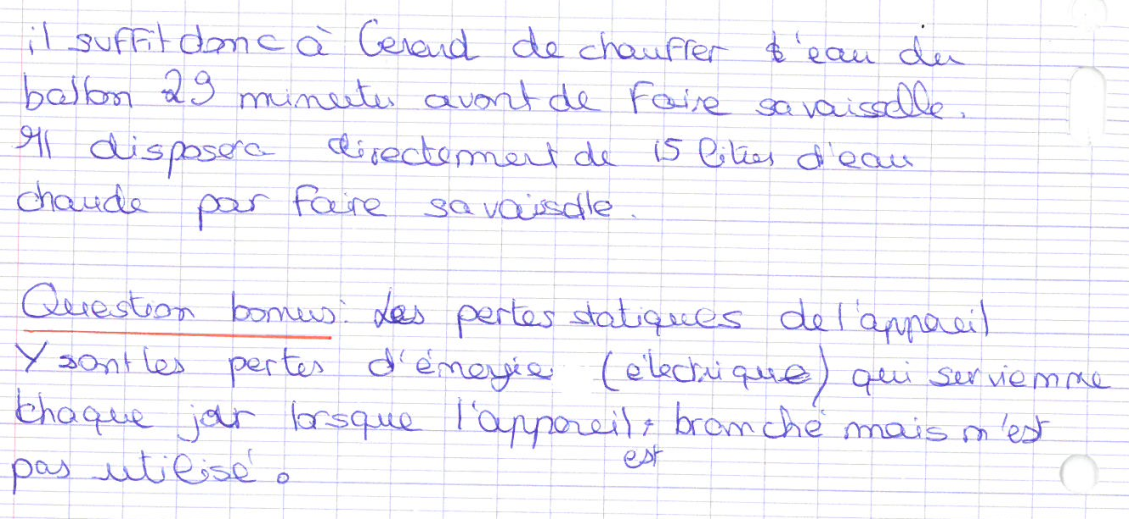 il suffit donc à Gerard de chauffer l'eau du
ballon 29 minutes avant de faire sa vaisselle.
Il disposera directement de 15 litres d'eau
chaude par faire sa vaisselle.
Question bonus: Les pertes statiques de l'appareil
Y sont les pertes d'énergie (électrique) qui serviemne
chaque jour lorsque l'appareil est branché mais n'est
pas utilisé.